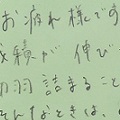 お疲れ様です
成績が伸び
切羽詰まること
そんなときは、